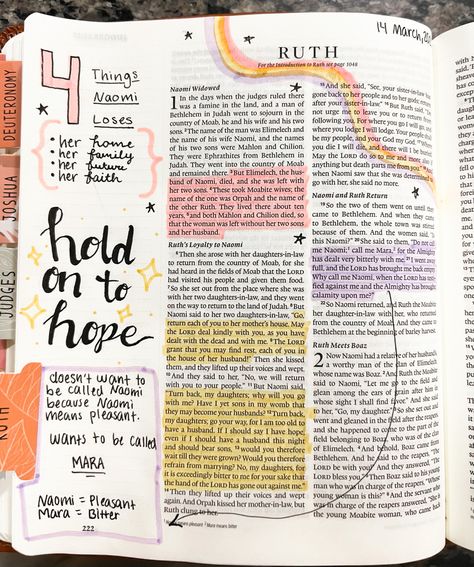 14 March, 20
DEUTERONOMY
JOSHUA
JUDGES
RUTH
4 Things
Naomi
Loses
· her home
· her family
· her future
· her faith
hold
on to
hope
doesn't want to
be called Naomi
because Naomi
means pleasant.
wants to be called
MARA
Naomi = Pleasant
Mara = Bitter
222
RUTH
For the Introduction to Ruth see page 1048
Naomi Widowed
1 In the days when the judges ruled there
was a famine in the land, and a man of
Bethlehem in Judah went to sojourn in the
country of Moab, he and his wife and his two
sons. ²The name of the man was Elimelech and
the name of his wife Naomi, and the names of
his two sons were Mahlon and Chilion. They
were Ephrathites from Bethlehem in Judah.
They went into the country of Moab
and remained there. ³But Elimelech, the hus-
band of Naomi, died, and she was left with
her two sons. ⁴These took Moabite wives; the
name of the one was Orpah and the name of
the other Ruth. They lived there about ten
years, ⁵and both Mahlon and Chilion died, so
that the woman was left without her two sons
and her husband.
Ruth's Loyalty to Naomi
⁶Then she arose with her daughters-in-law
to return from the country of Moab, for she
had heard in the fields of Moab that the LORD
had visited his people and given them food.
⁷So she set out from the place where she was
with her two daughters-in-law, and they went
on the way to return to the land of Judah. ⁸But
Naomi said to her two daughters-in-law, "Go,
return each of you to her mother's house. May
the LORD deal kindly with you, as you have
dealt with the dead and with me. ⁹The LORD
grant that you may find rest, each of you in
the house of her husband!" Then she kissed
them, and they lifted up their voices and wept.
¹⁰And they said to her, "No, we will return
with you to your people." ¹¹But Naomi said,
"Turn back, my daughters; why will you go
with me? Have I yet sons in my womb that
they may become your husbands? ¹²Turn back,
my daughters; go your way, for I am too old to
have a husband. If I should say I have hope,
even if I should have a husband this night and
should bear sons, ¹³would you therefore
wait till they were grown? Would you therefore
refrain from marrying? No, my daughters, for
it is exceedingly bitter to me for your sake that
the hand of the LORD has gone out against me."
¹⁴Then they lifted up their voices and wept
again. And Orpah kissed her mother-in-law, but
Ruth clung to her.
means pleasant ² Mara means bitter
¹⁵And she said, "See, your sister-in-law has
gone back to her people and to her gods; return
after your sister-in-law." ¹⁶But Ruth said, "Do
not urge me to leave you or to return from
following you. For where you go I will go, and
where you lodge I will lodge. Your people shall
be my people, and your God my God. ¹⁷Where
you die I will die, and there will I be buried.
May the LORD do so to me and more also if
anything but death parts me from you." ¹⁸And
when Naomi saw that she was determined to
go with her, she said no more.
Naomi and Ruth Return
¹⁹So the two of them went on until they
came to Bethlehem. And when they came
to Bethlehem, the whole town was stirred
because of them. And the women said, "Is
this Naomi?" ²⁰She said to them, "Do not call
me Naomi; call me Mara, for the Almighty
has dealt very bitterly with me. ²¹I went away
full, and the LORD has brought me back empty.
Why call me Naomi, when the LORD has testi-
fied against me and the Almighty has brought
calamity upon me?"
²²So Naomi returned, and Ruth the Moabite
her daughter-in-law with her, who returned
from the country of Moab. And they came to
Bethlehem at the beginning of barley harvest.
Ruth Meets Boaz
2 Now Naomi had a relative of her husband's,
a worthy man of the clan of Elimelech,
whose name was Boaz. ²And Ruth the Moabite
said to Naomi, "Let me go to the field and
glean among the ears of grain after him in
whose sight I shall find favor." And she said
to her, "Go, my daughter." ³So she set out and
went and gleaned in the field after the reapers,
and she happened to come to the part of the
field belonging to Boaz, who was of the clan
of Elimelech. ⁴And behold, Boaz came from
Bethlehem. And he said to the reapers, "The
LORD be with you!" And they answered, "The
LORD bless you." ⁵Then Boaz said to his young
man who was in charge of the reapers, "Whose
young woman is this?" ⁶And the servant who
was in charge of the reapers answered, "She is
the young Moabite woman, who came back